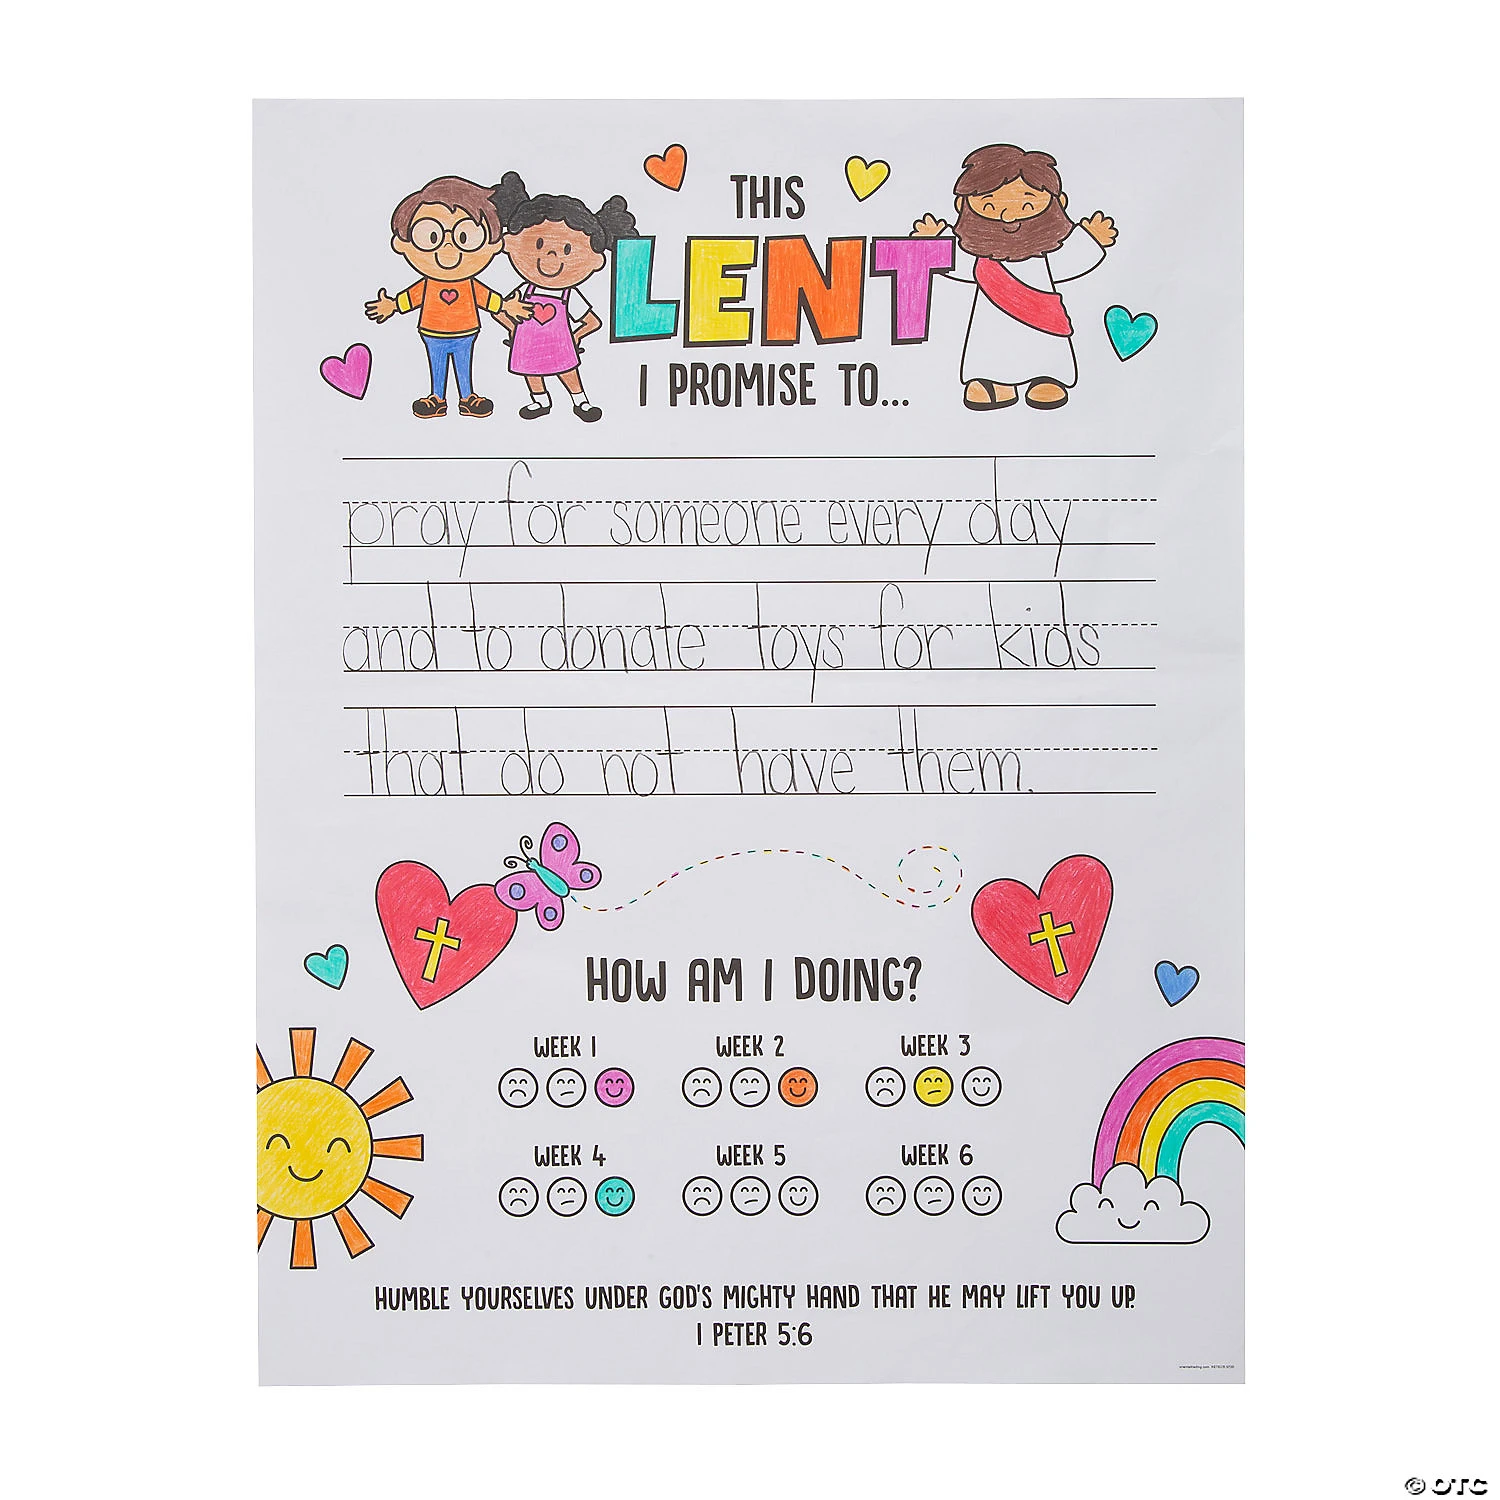 THIS
LENT
I PROMISE TO...
pray for someone every day
and to donate toys for kids
that do not have them.
HOW AM I DOING?
WEEK 1 WEEK 2 WEEK 3
WEEK 4 WEEK 5 WEEK 6
HUMBLE YOURSELVES UNDER GOD'S MIGHTY HAND THAT HE MAY LIFT YOU UP.
1 PETER 5:6
© OTC